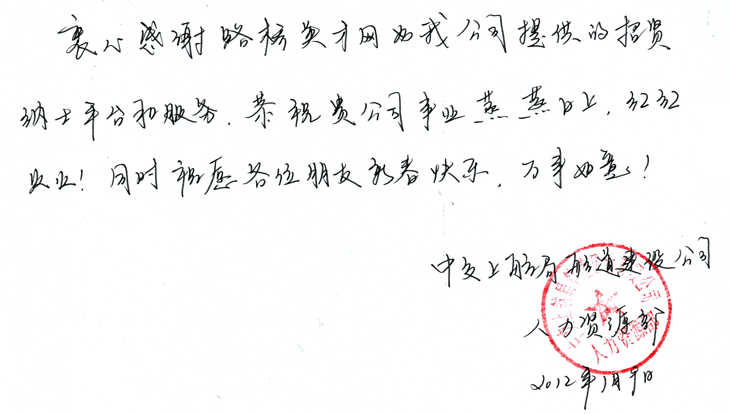 衷心感谢路桥英才网为我公司提供的招贤
纳士平台和服务。恭祝贵公司事业蒸蒸日上,红红
火火!同时祝愿各位朋友新春快乐,万事如意!
中交上航局航道建设公司
人力资源部
人力资源部
2012年1月9日